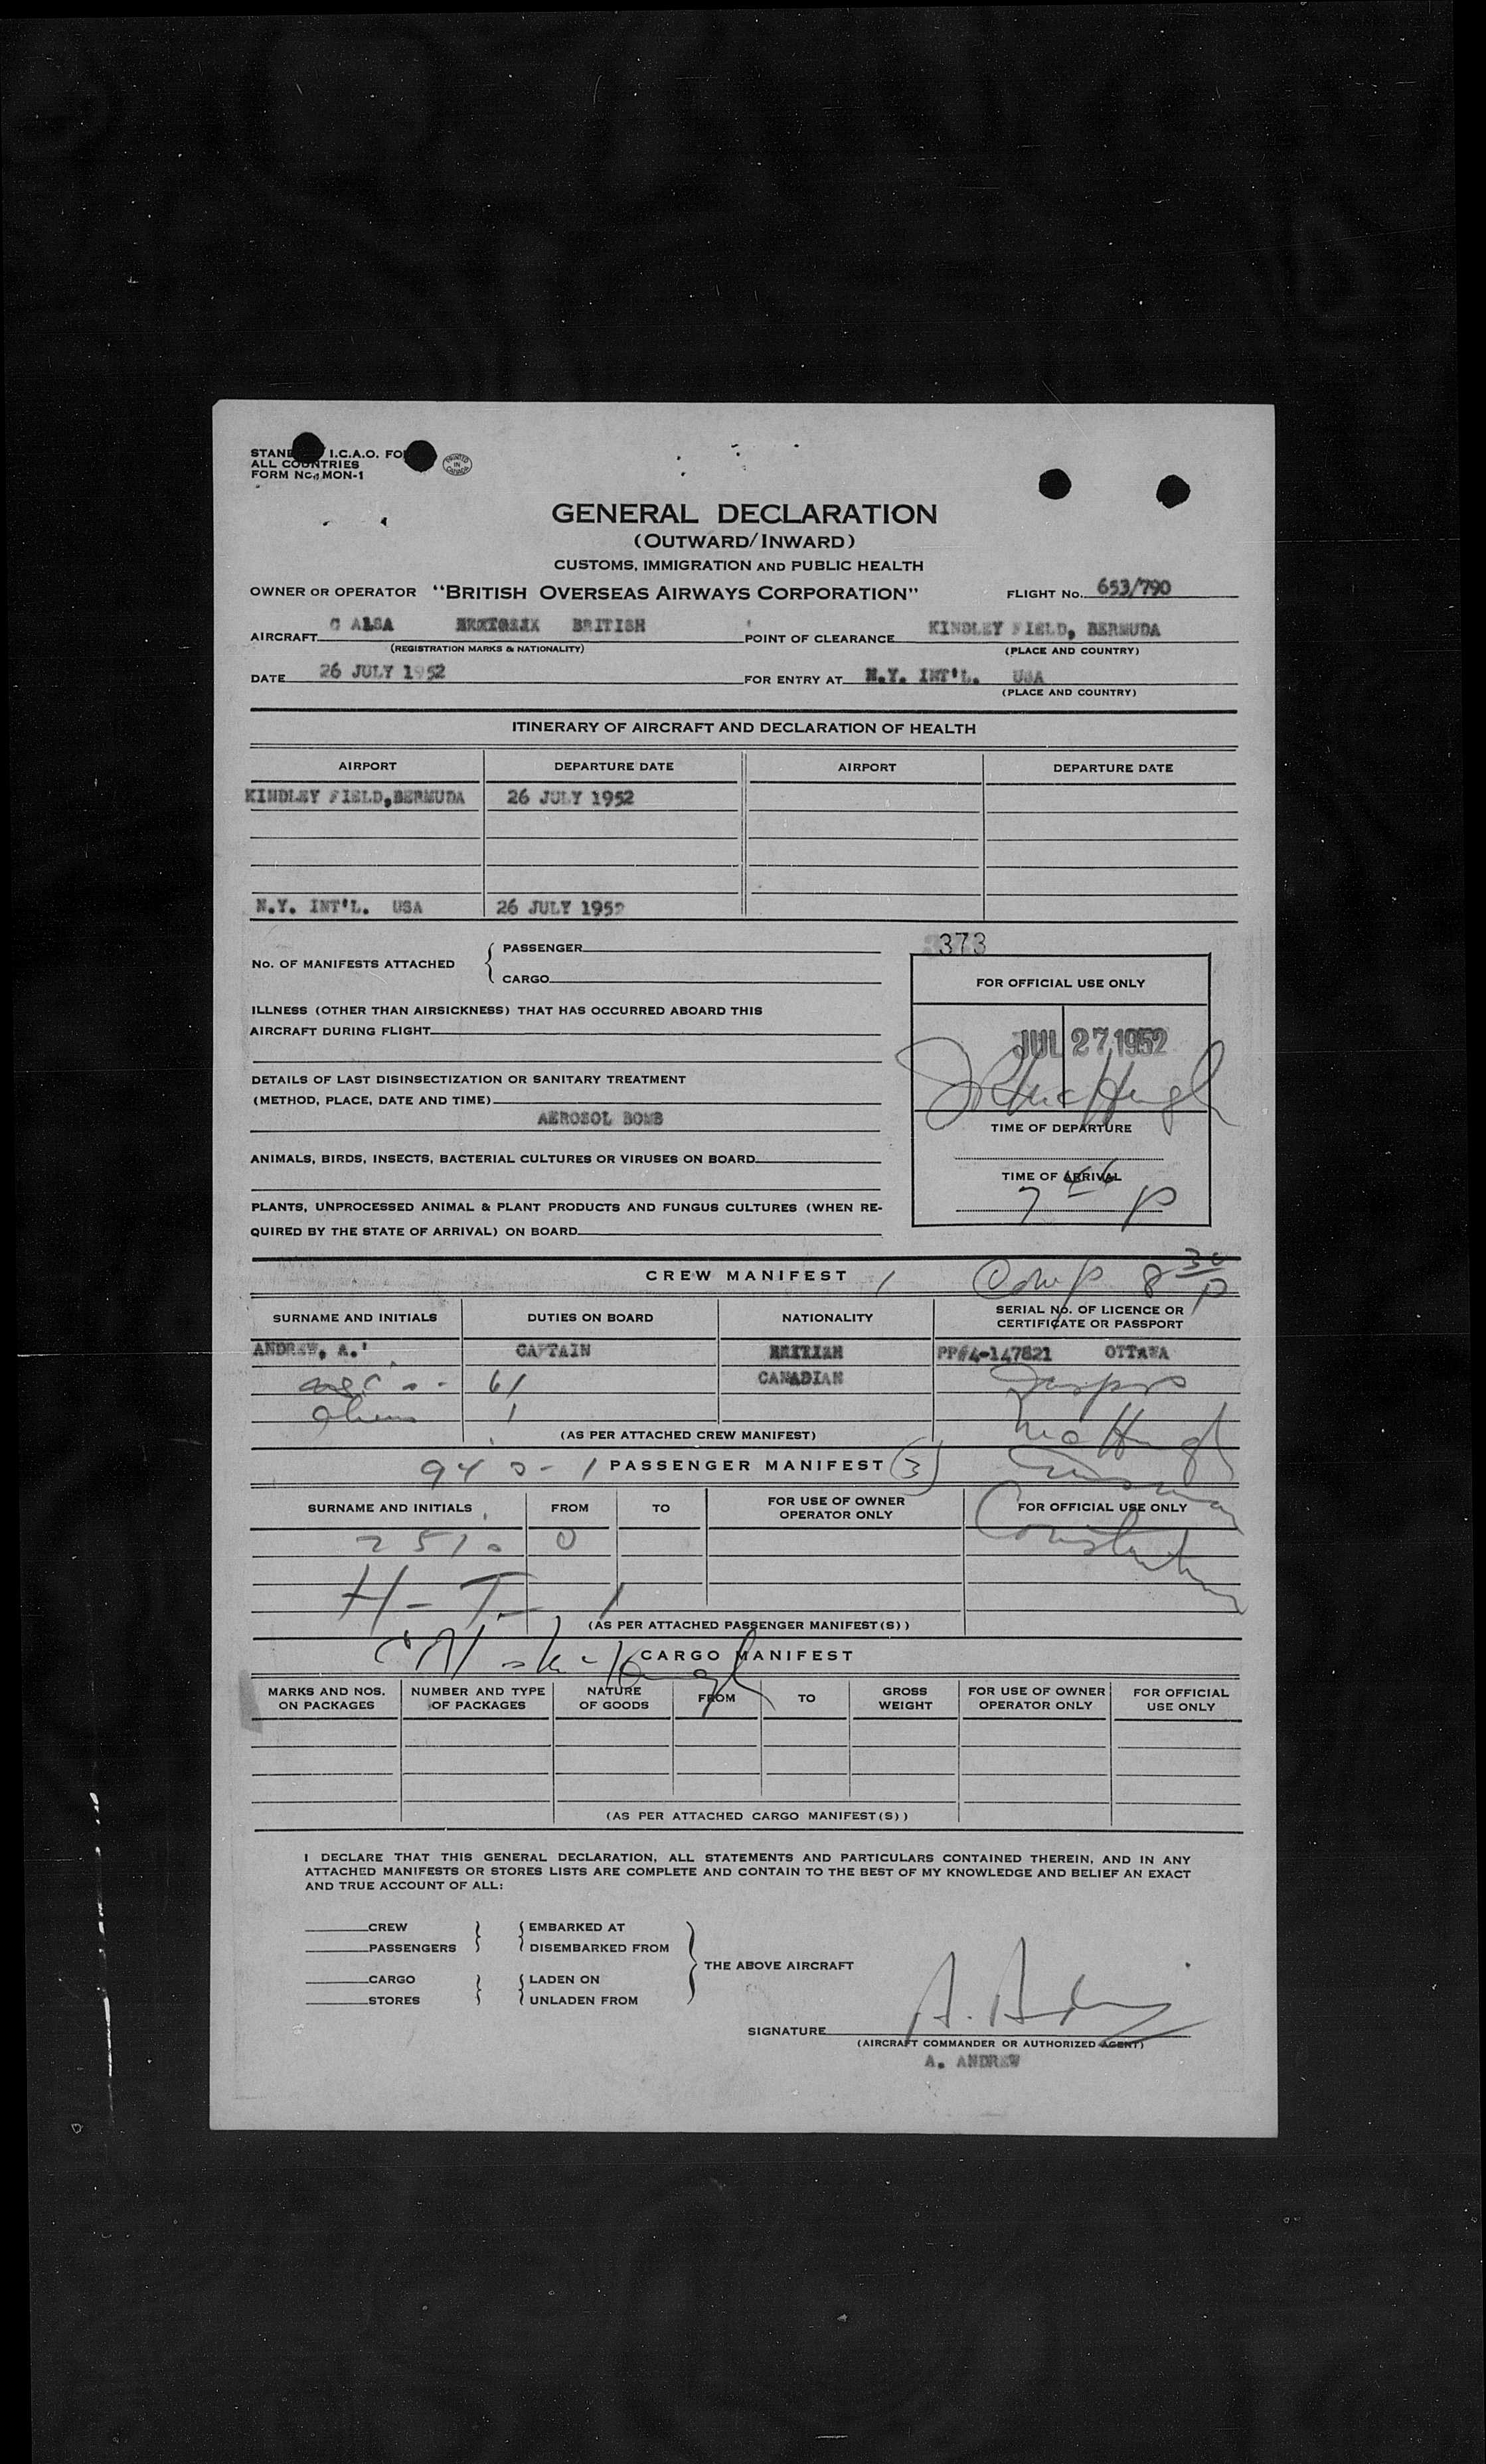 I.C.A.O.
ALL COUNTRIES
FORM No. MON-1
PRINTED IN CANADA
GENERAL DECLARATION
(OUTWARD/INWARD)
CUSTOMS, IMMIGRATION AND PUBLIC HEALTH
OWNER OR OPERATOR "BRITISH OVERSEAS AIRWAYS CORPORATION" FLIGHT No. 653/790
AIRCRAFT G ALSA BRITISH POINT OF CLEARANCE KINDLEY FIELD, BERMUDA
(REGISTRATION MARKS & NATIONALITY) (PLACE AND COUNTRY)
DATE 26 JULY 1952 FOR ENTRY AT N.Y. INT'L. USA
(PLACE AND COUNTRY)
ITINERARY OF AIRCRAFT AND DECLARATION OF HEALTH
AIRPORT DEPARTURE DATE AIRPORT DEPARTURE DATE
KINDLEY FIELD, BERMUDA 26 JULY 1952
N.Y. INT'L. USA 26 JULY 1952
373
No. OF MANIFESTS ATTACHED { PASSENGER
CARGO
FOR OFFICIAL USE ONLY
ILLNESS (OTHER THAN AIRSICKNESS) THAT HAS OCCURRED ABOARD THIS
AIRCRAFT DURING FLIGHT
JUL 27 1952
DETAILS OF LAST DISINSECTIZATION OR SANITARY TREATMENT
(METHOD, PLACE, DATE AND TIME)
AEROSOL BOMB
TIME OF DEPARTURE
ANIMALS, BIRDS, INSECTS, BACTERIAL CULTURES OR VIRUSES ON BOARD
TIME OF ARRIVAL
PLANTS, UNPROCESSED ANIMAL & PLANT PRODUCTS AND FUNGUS CULTURES (WHEN RE-
QUIRED BY THE STATE OF ARRIVAL) ON BOARD
CREW MANIFEST Comp 8 30 P
SURNAME AND INITIALS DUTIES ON BOARD NATIONALITY SERIAL No. OF LICENCE OR
CERTIFICATE OR PASSPORT
ANDREW, A. CAPTAIN BRITISH PP#4-147821 OTTAWA
CANADIAN
(AS PER ATTACHED CREW MANIFEST)
PASSENGER MANIFEST (3)
SURNAME AND INITIALS FROM TO FOR USE OF OWNER
OPERATOR ONLY FOR OFFICIAL USE ONLY
H-T-1
(AS PER ATTACHED PASSENGER MANIFEST(S))
CARGO MANIFEST
MARKS AND NOS.
ON PACKAGES NUMBER AND TYPE
OF PACKAGES NATURE
OF GOODS FROM TO GROSS
WEIGHT FOR USE OF OWNER
OPERATOR ONLY FOR OFFICIAL
USE ONLY
(AS PER ATTACHED CARGO MANIFEST(S))
I DECLARE THAT THIS GENERAL DECLARATION, ALL STATEMENTS AND PARTICULARS CONTAINED THEREIN, AND IN ANY
ATTACHED MANIFESTS OR STORES LISTS ARE COMPLETE AND CONTAIN TO THE BEST OF MY KNOWLEDGE AND BELIEF AN EXACT
AND TRUE ACCOUNT OF ALL:
CREW EMBARKED AT
PASSENGERS DISEMBARKED FROM
THE ABOVE AIRCRAFT
CARGO LADEN ON
STORES UNLADEN FROM
SIGNATURE
(AIRCRAFT COMMANDER OR AUTHORIZED AGENT)
A. ANDREW